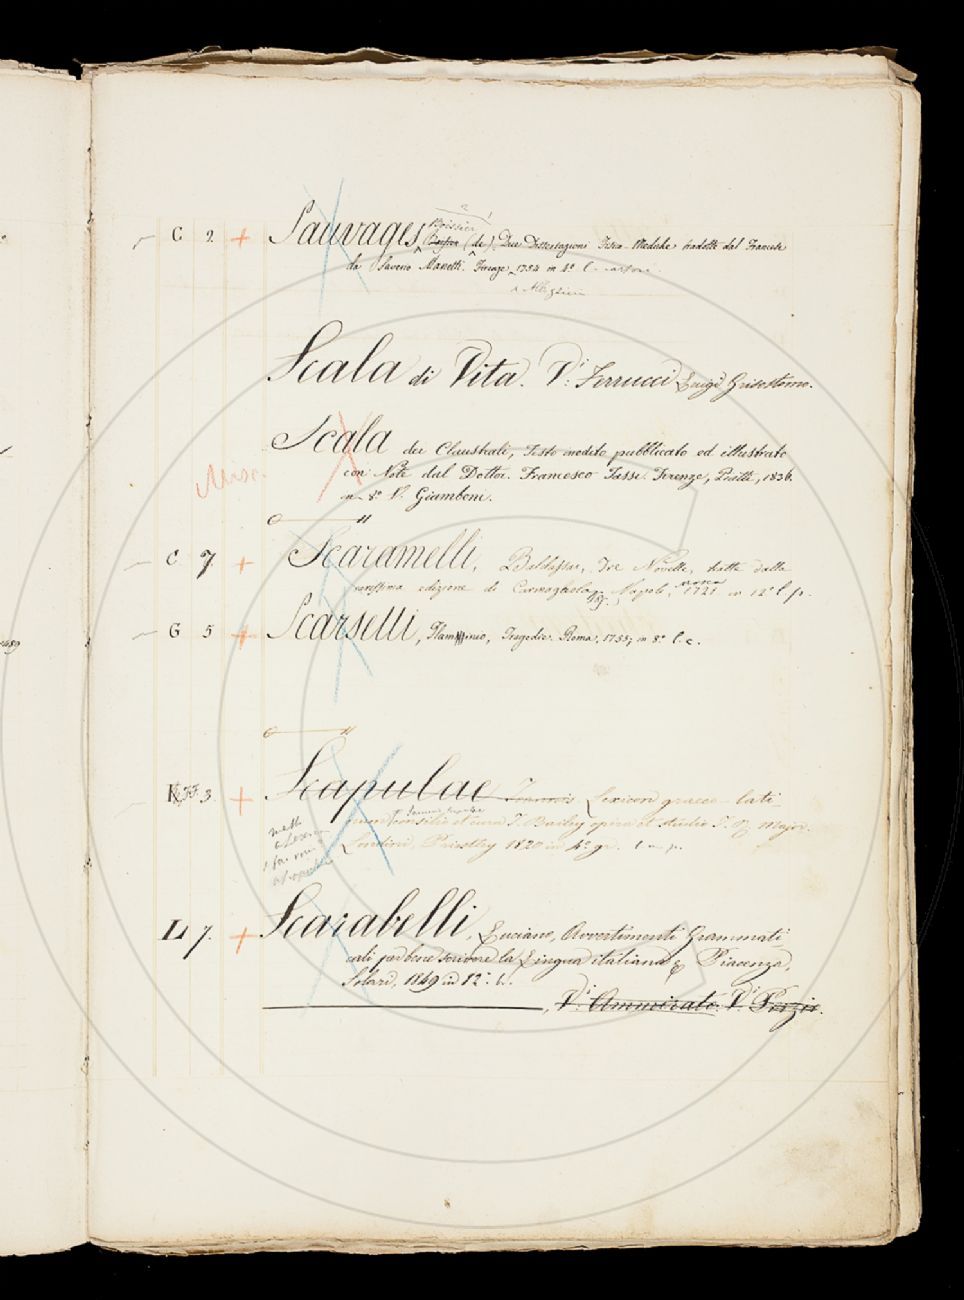 Boissier
C 2. + Sauvages, (de). Due Dissertazioni Fisico-Mediche tradotte dal Francese
da Saverio Manetti. Firenze, 1754 in 4°
Scala di Vita. Vi: Ferrucci Luigi Grisostomo.
Scala dei Claustrali, Testo inedito pubblicato ed illustrato
Misc.
con Note dal Dottor Francesco Tassi. Firenze, Piatti, 1836.
in 8° V. Giamboni.
C 7. + Scaramelli, Baldassar, Tre Novelle, tratte dalla
rarissima edizione di Carmagnola Napoli, 1721 in 12° l. p.
G 5 + Scarselli, Flaminio, Tragedie. Roma, 1755, in 8° l. c.
3. + Scapulae Joannis Lexicon graeco-lati
consilio et cura J. Bailey opera et studio J. R. Major.
Londini, Priestley 1820 in 4° gr.
L 7. + Scarabelli, Luciano, Avvertimenti Grammati
cali per bene scrivere la Lingua italiana & Piacenza,
Solari, 1849 in 12°
Vi: Ammirato. Vi: Porzio.